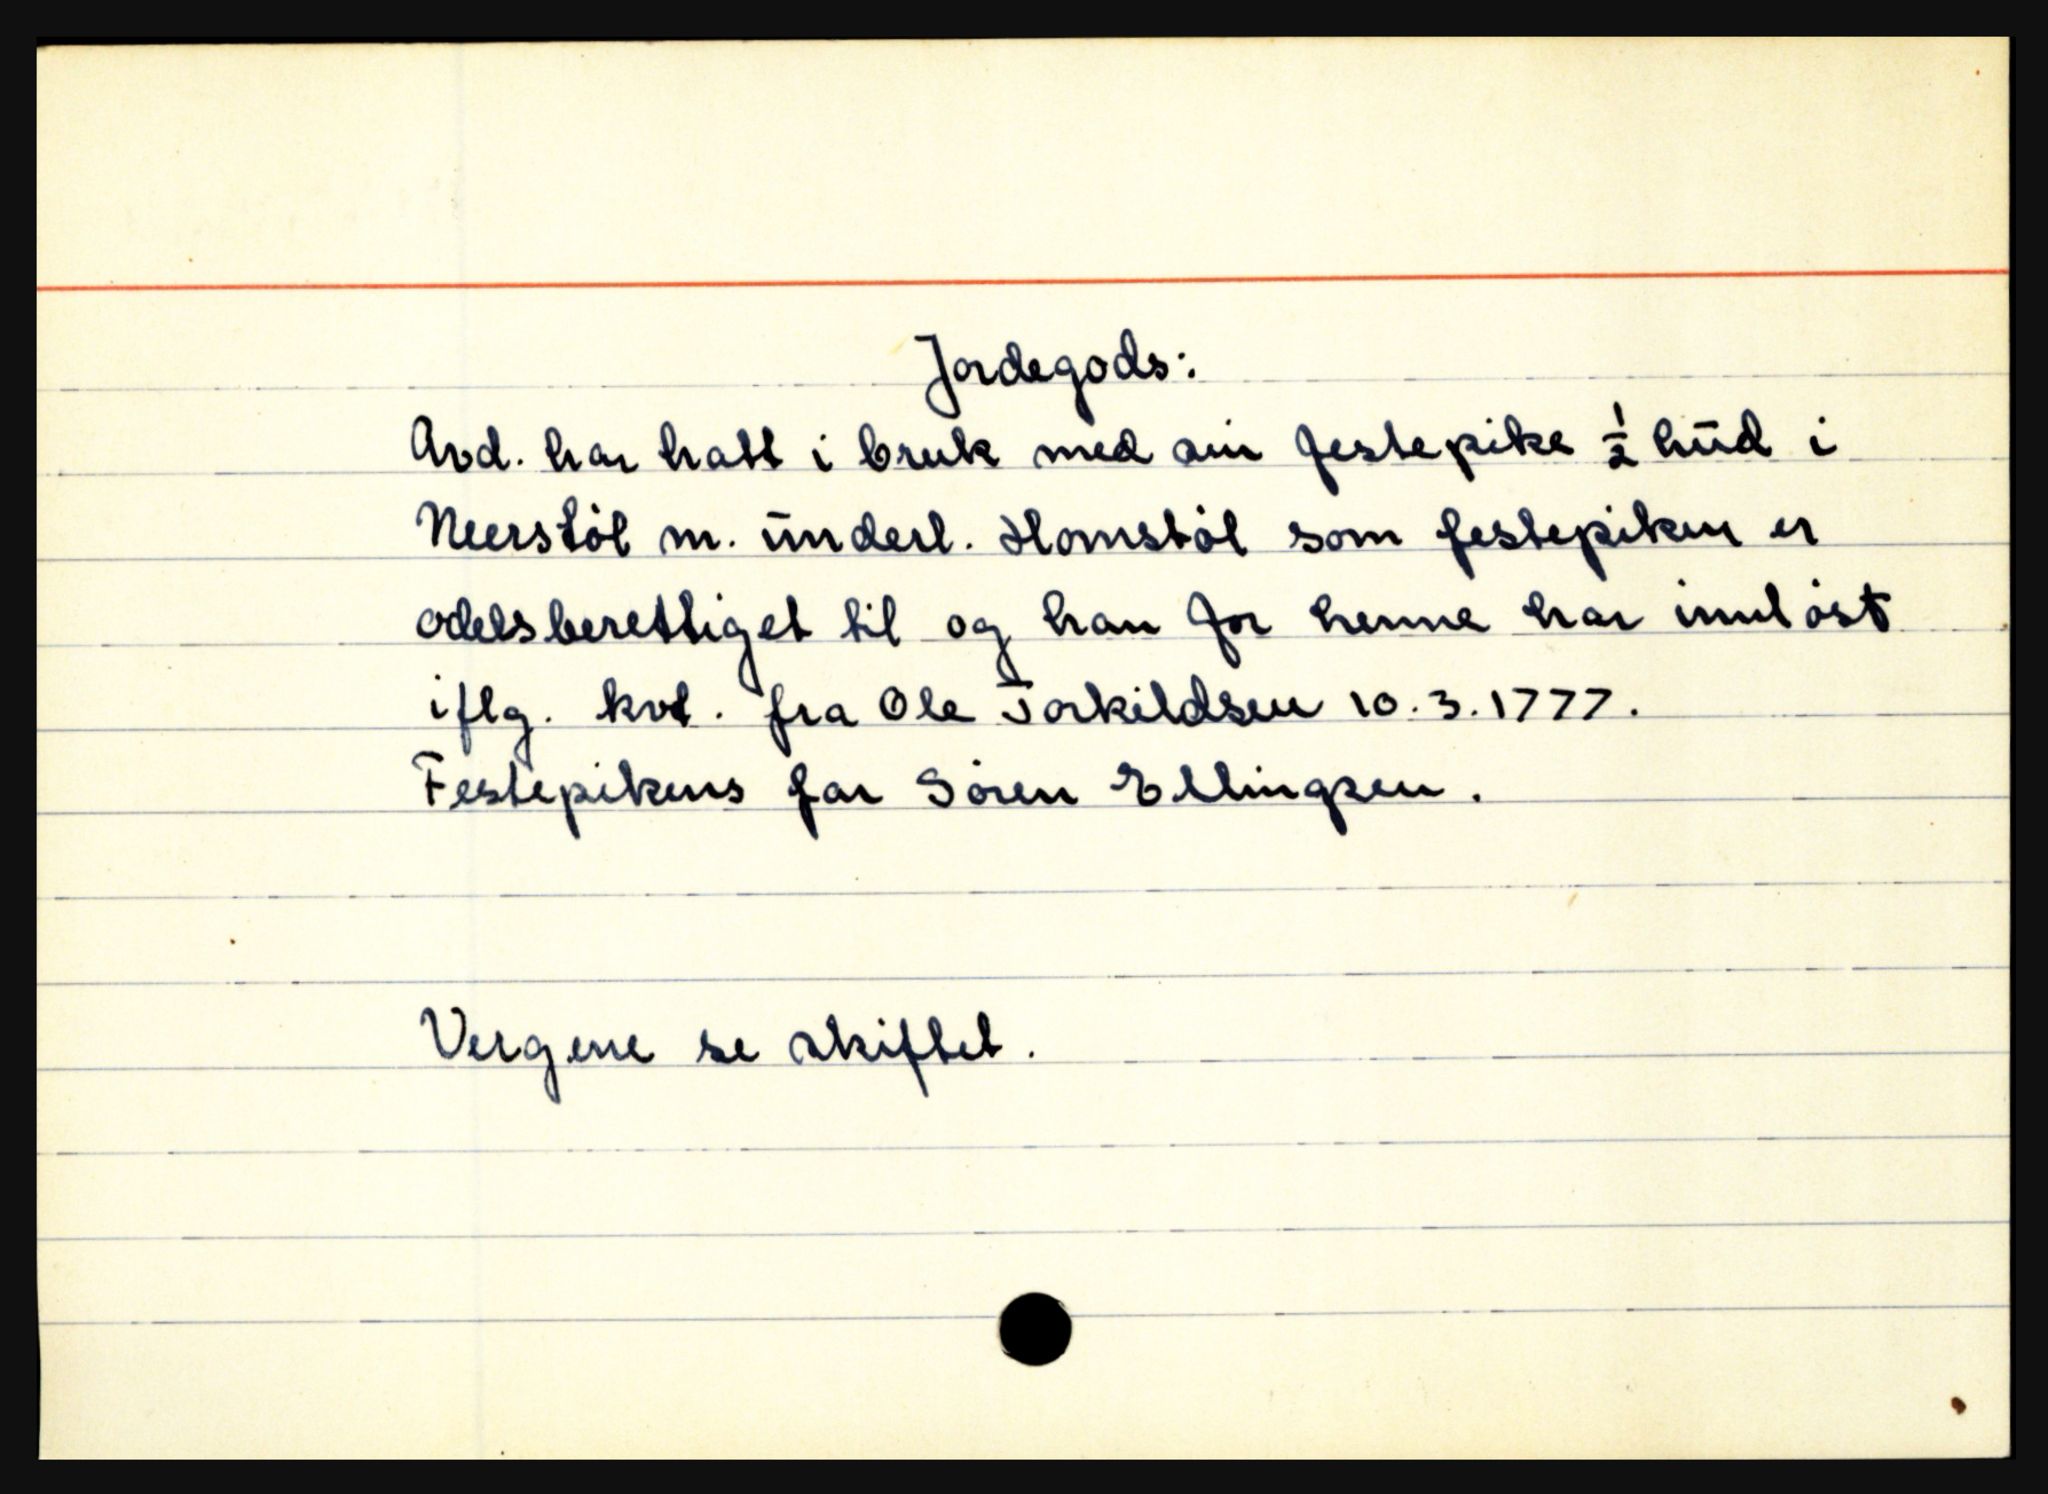 Jordegods:
Avd. har hatt i bruk med sin festepike ½ hūd i
Neerstöl m. ūnderl. Homstöl som festepiken er
odelsberettiget til og han for henne har innlöst
iflg. kvt. fra Ole Torkildsen 10.3.1777.
Festepikens far Sören Ellingsen.
Vergene se skiftet.